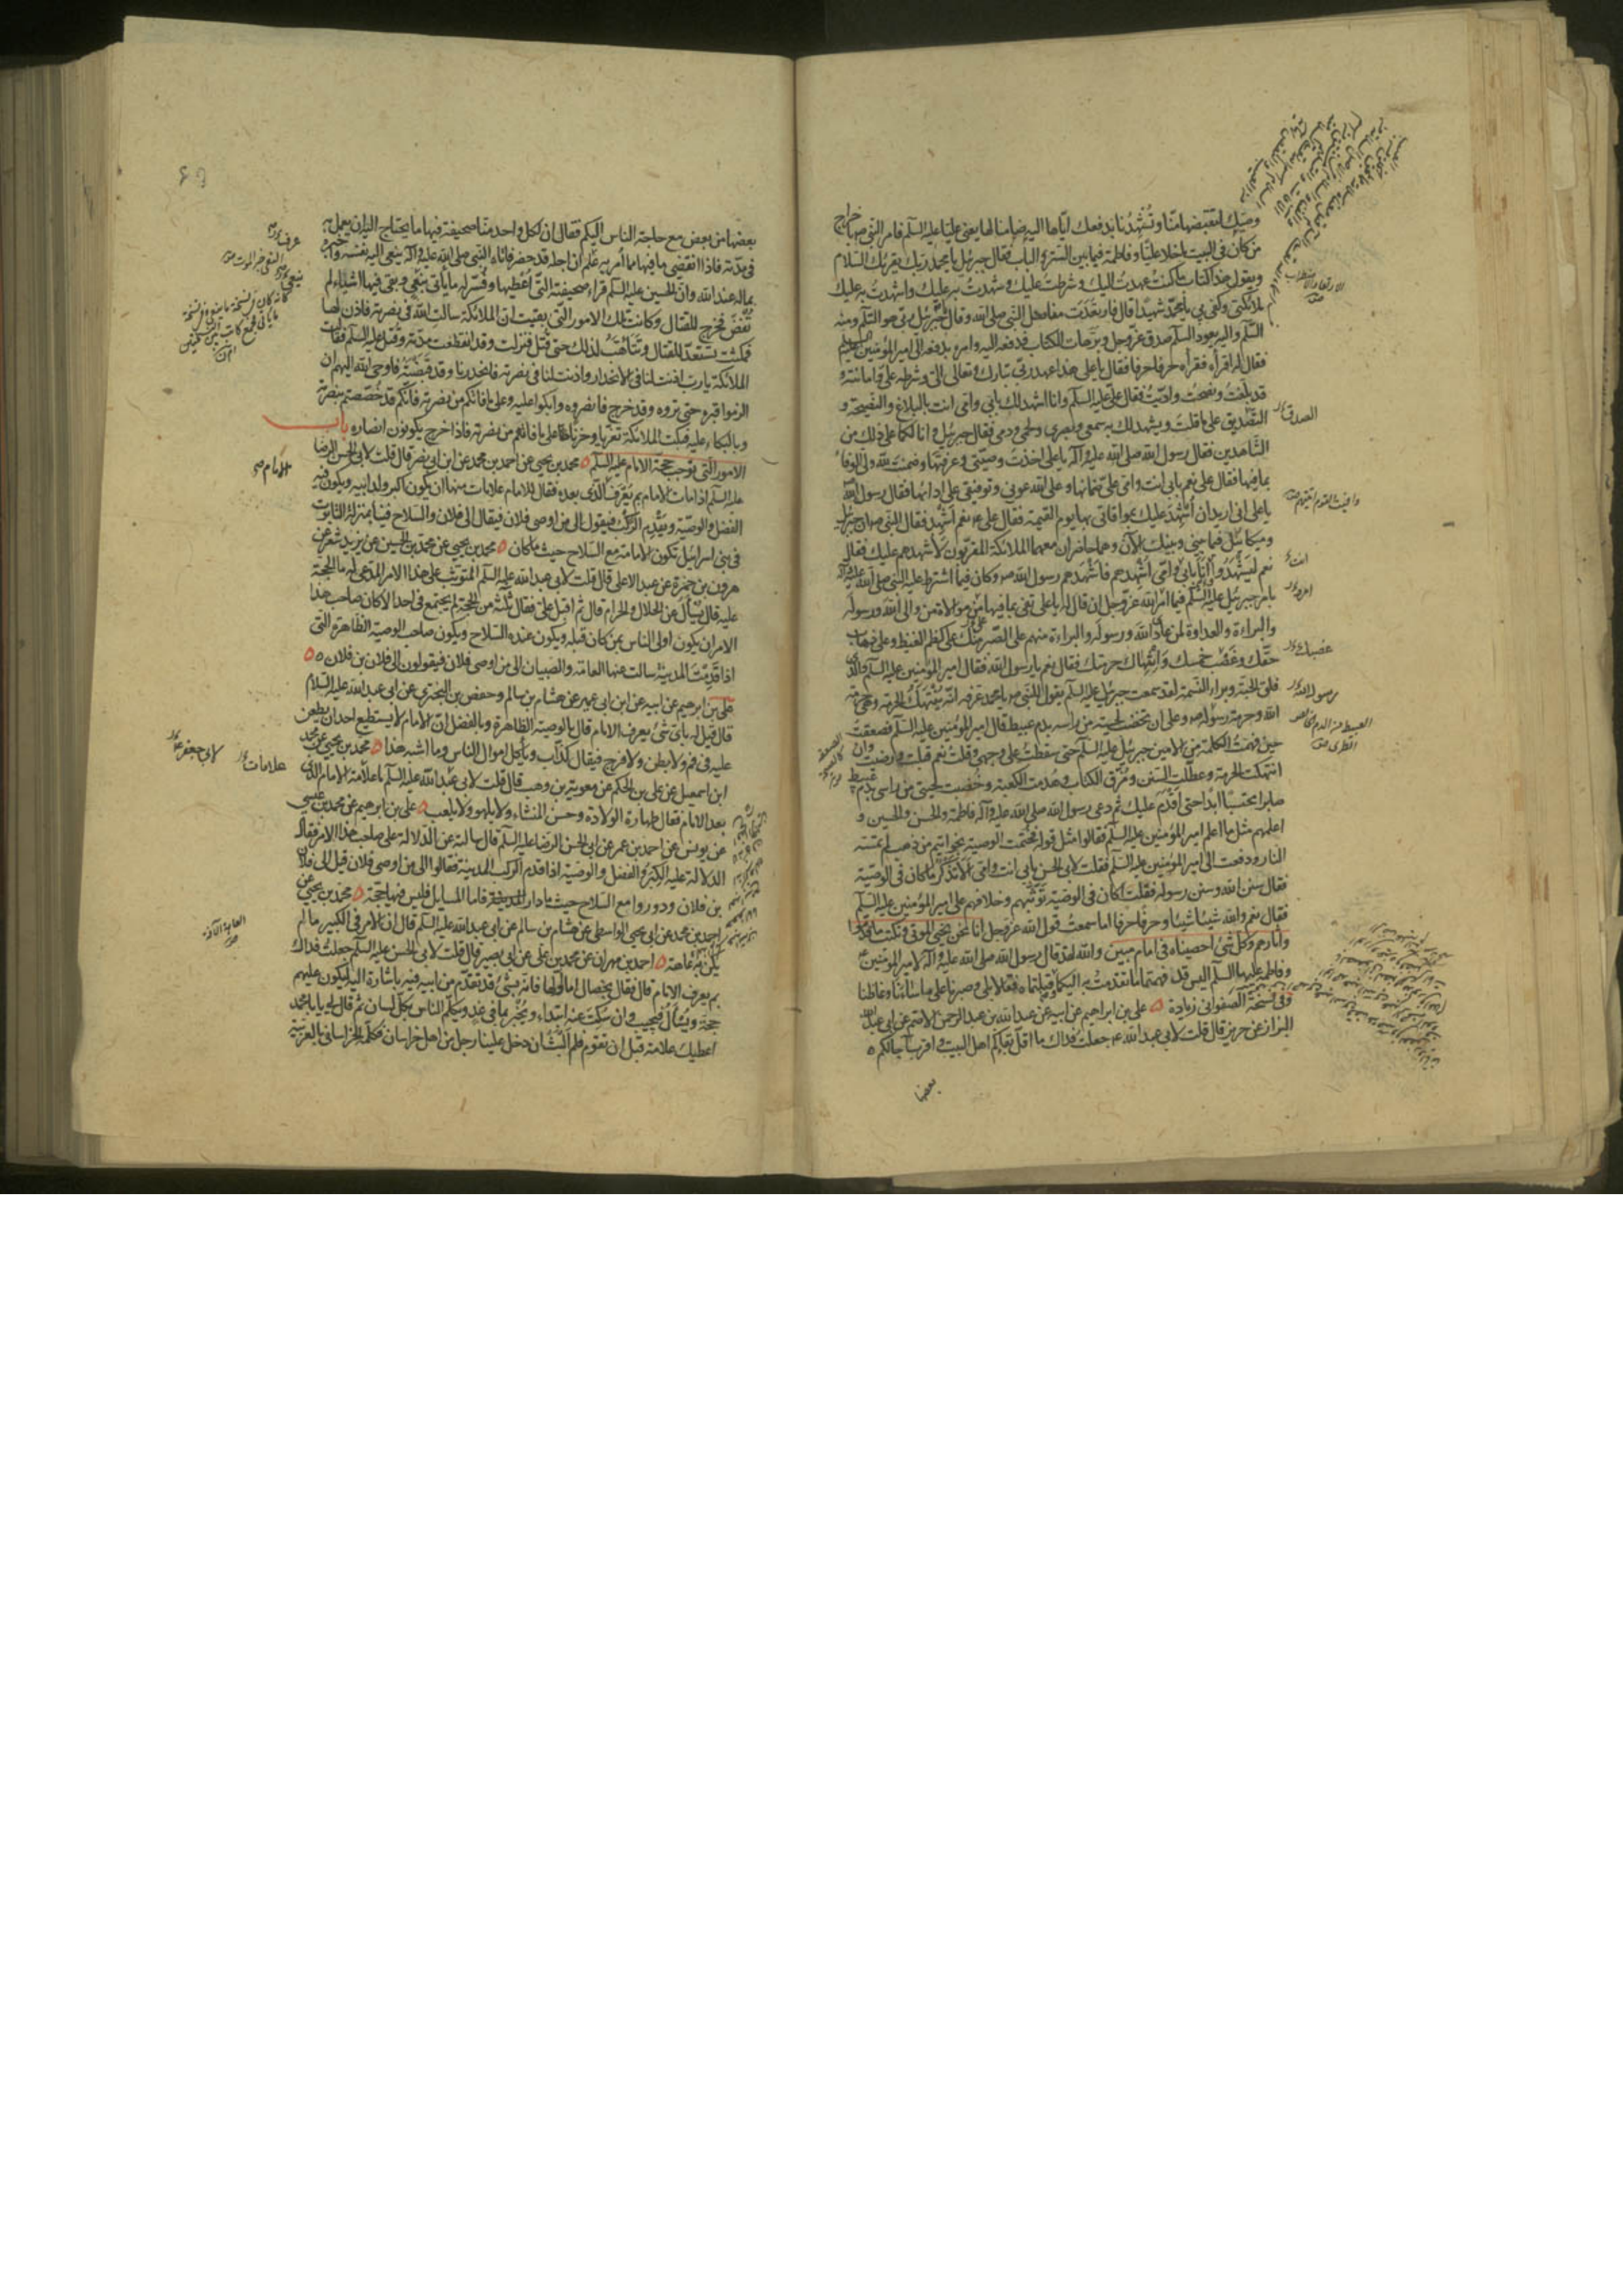 وصيك لتقبضها منا وتشهدنا بدفعك اياها اليه ضامنا لها يعنى عليا عليه السلم فامر النبى ص باخراج
من كان فى البيت ما خلا عليا وفاطمة فيما بين الستر والباب فقال جبرئيل يا محمد ربك يقرئك السلام
ويقول هذا كتاب ما كنت عهدت اليك وشرطت عليك وشهدت به عليك واشهدت به عليك
ملائكتى وكفى بى يا محمد شهيدا قال فارتعدت مفاصل النبى صلى الله وقال يا جبرئيل ربى هو السلم ومنه
السلم واليه يعود السلم صدق عز وجل وبر هات الكتاب فدفعه اليه وامره بدفعه الى امير المؤمنين
فقال له اقرأه فقرأه حرفا حرفا فقال يا على هذا عهد ربى تبارك وتعالى الى وشرطه على وامانته و
قد بلغت ونصحت واديت فقال على عليه السلم وانا اشهد لك بابى وامى انت بالبلاغ والنصيحة و
التصديق على ما قلت ويشهد لك به سمعى وبصرى ولحمى ودمى فقال جبرئيل وانا لكما على ذلك من
الشاهدين فقال رسول الله صلى الله عليه وآله يا على اخذت وصيتى وعرفتها وضمنت لله ولى الوفاء
بما فيها فقال على نعم بابى انت وامى على ضمانها وعلى الله عونى وتوفيقى على ادائها فقال رسول الله
يا على انى اريد ان اشهد عليك بموافاتى بها يوم القيمة فقال على ع نعم اشهد فقال النبى ص ان جبرئيل
وميكائيل فيما بينى وبينك الآن وهما حاضران معهما الملائكة المقربون لاشهدهم عليك فقال
نعم ليشهدوا وانا بابى وامى اشهدهم فاشهدهم رسول الله ص وكان فيما اشترط عليه النبى صلى الله عليه وآله
بامر جبرئيل عليه السلم فيما امر الله عز وجل ان قال له يا على تفى بما فيها من موالاة من والى الله ورسوله
والبراءة والعداوة لمن عادى الله ورسوله والبراءة منهم على الصبر منك على كظم الغيظ وعلى ذهاب
حقك وغصب خمسك وانتهاك حرمتك فقال نعم يا رسول الله فقال امير المؤمنين عليه السلم والذى
فلق الحبة وبرأ النسمة لقد سمعت جبرئيل عليه السلم يقول للنبى ص يا محمد عرفه انه ينتهك الحرمة وهى حرمة
الله وحرمة رسول الله ص وعلى ان تخضب لحيته من راسه بدم عبيط قال امير المؤمنين عليه السلم فصعقت
حين فهمت الكلمة من الامين جبرئيل عليه السلم حتى سقطت على وجهى وقلت نعم قبلت ورضيت وان
انتهكت الحرمة وعطلت السنن ومزق الكتاب وهدمت الكعبة وخضبت لحيتى من راسى بدم عبيط
صابرا محتسبا ابدا حتى اقدم عليك ثم دعى رسول الله صلى الله عليه وآله فاطمة والحسن والحسين و
اعلمهم مثل ما اعلم امير المؤمنين عليه السلم فقالوا مثل قوله فختمت الوصية بخواتيم من ذهب لم تمسه
النار ودفعت الى امير المؤمنين عليه السلم فقلت لابى الحسن بابى انت وامى الا تذكر ما كان فى الوصية
فقال سنن الله وسنن رسوله فقلت اكان فى الوصية توثبهم وخلافهم على امير المؤمنين عليه السلم
فقال نعم والله شيئا شيئا وحرفا حرفا اما سمعت قول الله عز وجل انا نحن نحيى الموتى ونكتب ما قدموا
وآثارهم وكل شئ احصيناه فى امام مبين والله لقد قال رسول الله صلى الله عليه وآله لامير المؤمنين
وفاطمة عليهما السلم اليس قد فهمتما ما تقدمت به اليكما وقبلتماه فقالا بلى وصبرنا على ما ساءنا وغاظنا
وفى نسخة الصفوانى زيادة ٥ على بن ابراهيم عن ابيه عن عبد الله بن عبد الرحمن الاصم عن ابى عبد الله
البزاز عن حريز قال قلت لابى عبد الله ع جعلت فداك ما اقل بقاءكم اهل البيت واقرب آجالكم
بعضها
الصدق
انت
رسول الله
بعضها من بعض مع حاجة الناس اليكم فقال ان لكل واحد منا صحيفة فيها ما يحتاج اليه ان يعمل به
فى مدته فاذا انقضى ما فيها مما امر به علم ان اجله قد حضر فاتاه النبى صلى الله عليه وآله ينعى اليه نفسه واخبره
بماله عند الله وان الحسين عليه السلم قراء صحيفته التى اعطيها وفسر له ما ياتى بنعى وبقى فيها اشياء لم
تقض فخرج للقتال وكانت تلك الامور التى بقيت ان الملائكة سالت الله فى نصرته فاذن لها
فمكثت تستعد للقتال وتتاهب لذلك حتى قتل فنزلت وقد انقطعت مدته وقتل عليه السلم فقالت
الملائكة يا رب اذنت لنا فى الانحدار واذنت لنا فى نصرته فانحدرنا وقد قبضته فاوحى الله اليهم ان
الزموا قبره حتى تروه وقد خرج فانصروه وابكوا عليه وعلى ما فاتكم من نصرته فانكم قد خصصتم بنصرته
وبالبكاء عليه فبكت الملائكة تعزيا وحزنا على ما فاتهم من نصرته فاذا خرج يكونون انصاره باب
الامور التى توجب حجة الامام عليه السلم ٥ محمد بن يحيى عن احمد بن محمد عن ابن ابى نصر قال قلت لابى الحسن الرضا
عليه السلم اذا مات الامام بم يعرف الذى بعده فقال للامام علامات منها ان يكون اكبر ولد ابيه ويكون فيه
الفضل والوصية ويقدم الركب فيقول الى من اوصى فلان فيقال الى فلان والسلاح فينا بمنزلة التابوت
فى بنى اسرائيل تكون الامامة مع السلاح حيث ما كان ٥ محمد بن يحيى عن محمد بن الحسين عن يزيد شعر عن
هرون بن حمزة عن عبد الاعلى قال قلت لابى عبد الله عليه السلم المتوثب على هذا الامر المدعى له ما الحجة
عليه قال يسأل عن الحلال والحرام قال ثم اقبل على فقال ثلثة من الحجة لم يجتمع فى احد الا كان صاحب هذا
الامر ان يكون اولى الناس بمن كان قبله ويكون عنده السلاح ويكون صاحب الوصية الظاهرة التى
اذا قدمت المدينة سالت عنها العامة والصبيان الى من اوصى فلان فيقولون الى فلان بن فلان ٥٥
على بن ابرهيم عن ابيه عن ابن ابى عمير عن هشام بن سالم وحفص بن البخترى عن ابى عبد الله عليه السلام
قال قيل له باى شئ يعرف الامام قال بالوصية الظاهرة وبالفضل ان الامام لا يستطيع احد ان يطعن
عليه فى فم ولا بطن ولا فرج فيقال كذاب وياكل اموال الناس وما اشبه هذا ٥ محمد بن يحيى عن محمد
ابن اسمعيل عن على بن الحكم عن معوية بن وهب قال قلت لابى عبد الله عليه السلم ما علامة الامام الذى
بعد الامام فقال طهارة الولادة وحسن المنشاء ولا يلهو ولا يلعب ٥ على بن ابرهيم عن محمد بن عيسى
عن يونس عن احمد بن عمر عن ابى الحسن الرضا عليه السلم قال سالته عن الدلالة على صاحب هذا الامر فقال
الدلالة عليه الكبر والفضل والوصية اذا قدم الركب المدينة فقالوا الى من اوصى فلان قيل الى فلان
بن فلان ودوروا مع السلاح حيث ما دار فاما المسايل فليس فيها حجة ٥ محمد بن يحيى عن
احمد بن محمد عن ابى يحيى الواسطى عن هشام بن سالم عن ابى عبد الله عليه السلم قال ان الامر فى الكبير ما لم
يكن به عاهة ٥ احمد بن مهران عن محمد بن على عن ابى بصير قال قلت لابى الحسن عليه السلم جعلت فداك
بم يعرف الامام قال فقال بخصال اما اولها فانه بشئ قد تقدم من ابيه فيه باشارة اليه ليكون عليهم
حجة ويسأل فيجيب وان سكت عنه ابتداء ويخبر بما فى غد ويكلم الناس بكل لسان ثم قال لى يا با محمد
اعطيك علامة قبل ان تقوم فلم البث ان دخل علينا رجل من اهل خراسان فكلمه الخراسانى بالعربية
علامات
لابى جعفر